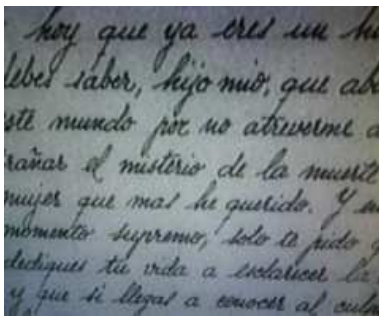 hoy que ya eres un
debes saber, hijo mio, que
este mundo por no atreverme a
trañar el misterio de la muerte
mujer que mas he querido. Y en
momento supremo, solo te pido q
dediques tu vida a esclarecer la
y que si llegas a conocer al